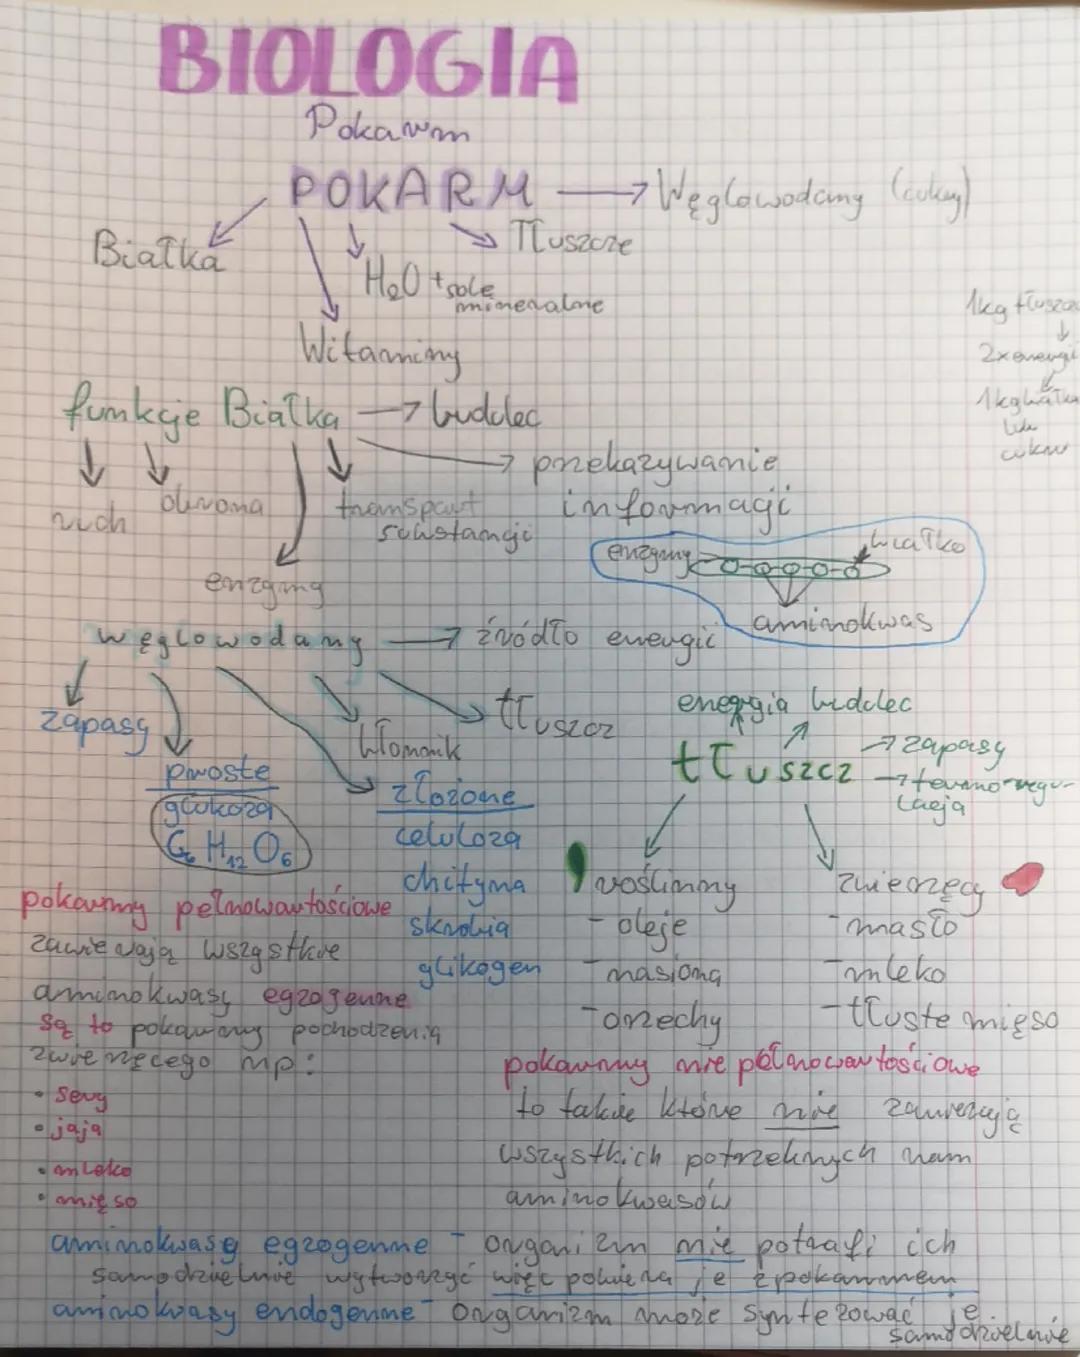 BIOLOGIA
Pokarm
POKARM → Węglowodany (cukry)
Białka
Tłuszcze
H₂O + sole
mineralne
Witaminy
1kg tłuszczu
2x energii
1kg białka
lub
cukru
funkcje Białka → budulec
przekazywanie
informacji
ruch
obrona
transport
substancji
enzymy
enzymy
białko
aminokwas
węglowodany → źródło energii
zapasy
tłuszcz
błonnik
proste
glukoza
C₆H₁₂O₆
złożone
celuloza
chityna
skrobia
glikogen
energia budulec
tłuszcz
→ zapasy
→ termoregu-
lacja
roślinny
- oleje
- nasiona
- orzechy
zwierzęcy
- masło
- mleko
- tłuste mięso
pokarmy pełnowartościowe
zawierają wszystkie
aminokwasy egzogenne
są to pokarmy pochodzenia
zwierzęcego np:
• sery
• jaja
• mleko
• mięso
pokarmy nie pełnowartościowe
to takie które nie zawierają
wszystkich potrzebnych nam
aminokwasów
aminokwasy egzogenne - organizm nie potrafi ich
samodzielnie wytworzyć więc pobiera je z pokarmem
aminokwasy endogenne - organizm może syntezować je
samodzielnie